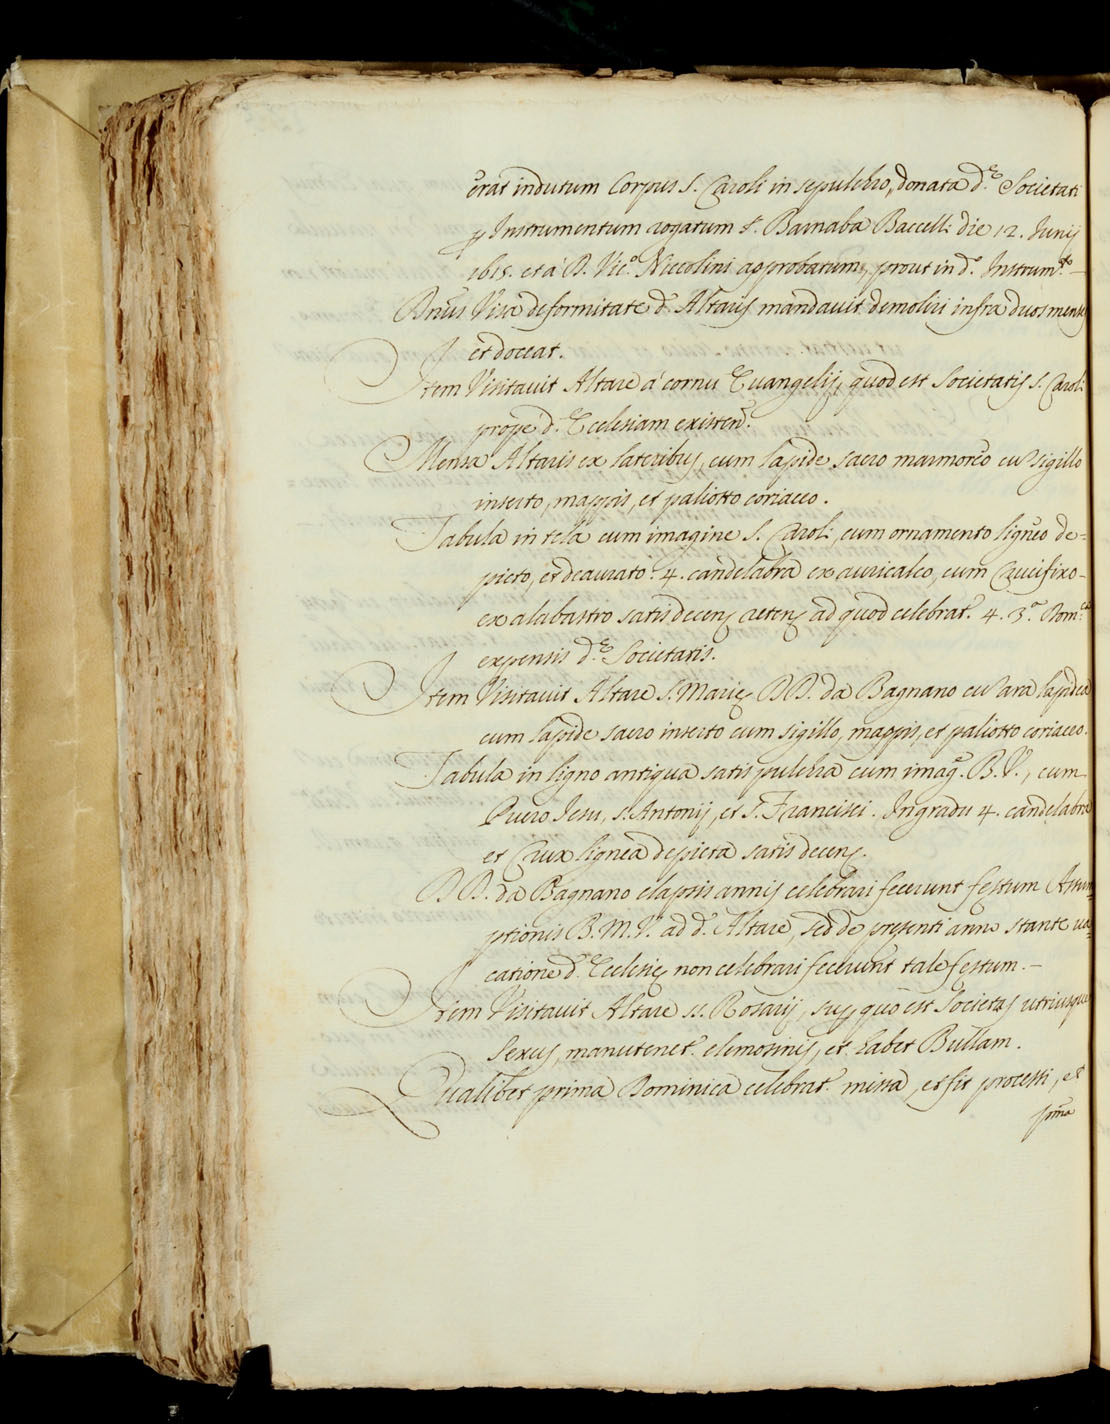 erat indutum Corpus S. Caroli in sepulchro, donata d.ę Societati
ꝑ Instrumentum rogatum S. Barnaba Baccell: die 12. Junij
1615. et á D. Vic.º Niccolini approbatum, prout in d.º Instrum.to
Dnus Visa deformitate d. Altaris mandavit demoliri infra duos menses
et doceat.
Item Visitavit Altare á cornu Evangelij, quod est Societatis S. Caroli
prope d. Ecclesiam existen.
Mensa Altaris ex lateribus, cum lapide sacro marmoreo cu sigillo
inserto, mappis, et paliotto coriaceo.
Tabula in tela cum imagine S. Caroli, cum ornamento ligneo de=
picto, et deaurato: 4. candelabra ex auricalco, cum Crucifixo
ex alabastro satis decenę retenę ad quod celebrat. 4. 3.ª Dom.ca
expensis d.ę Societatis.
Item Visitavit Altare S. Marię DD. da Bagnano cu ara lapidea
cum lapide sacro inserto cum sigillo, mappis, et paliotto coriaceo.
Tabula in ligno antiqua satis pulchra cum imag. B. V., cum
Puero Jesu, S. Antonij, et S. Francisci. In gradu 4. candelabra
et Crux lignea depicta satis decenę.
DD. da Bagnano elapsis annis celebrari fecerunt festum Assum=
ptionis B. M. V. ad d. Altare, sed de presenti anno stante va=
catione d.ę Ecclesię non celebrari fecerunt tale festum. –
Item Visitavit Altare SS. Rosarij, sup quo est Societas utriusque
sexus, manutenet. elemosinis, et habet Bullam.
Qualibet prima Dominica celebrat. missa, et fit processi, et
pma